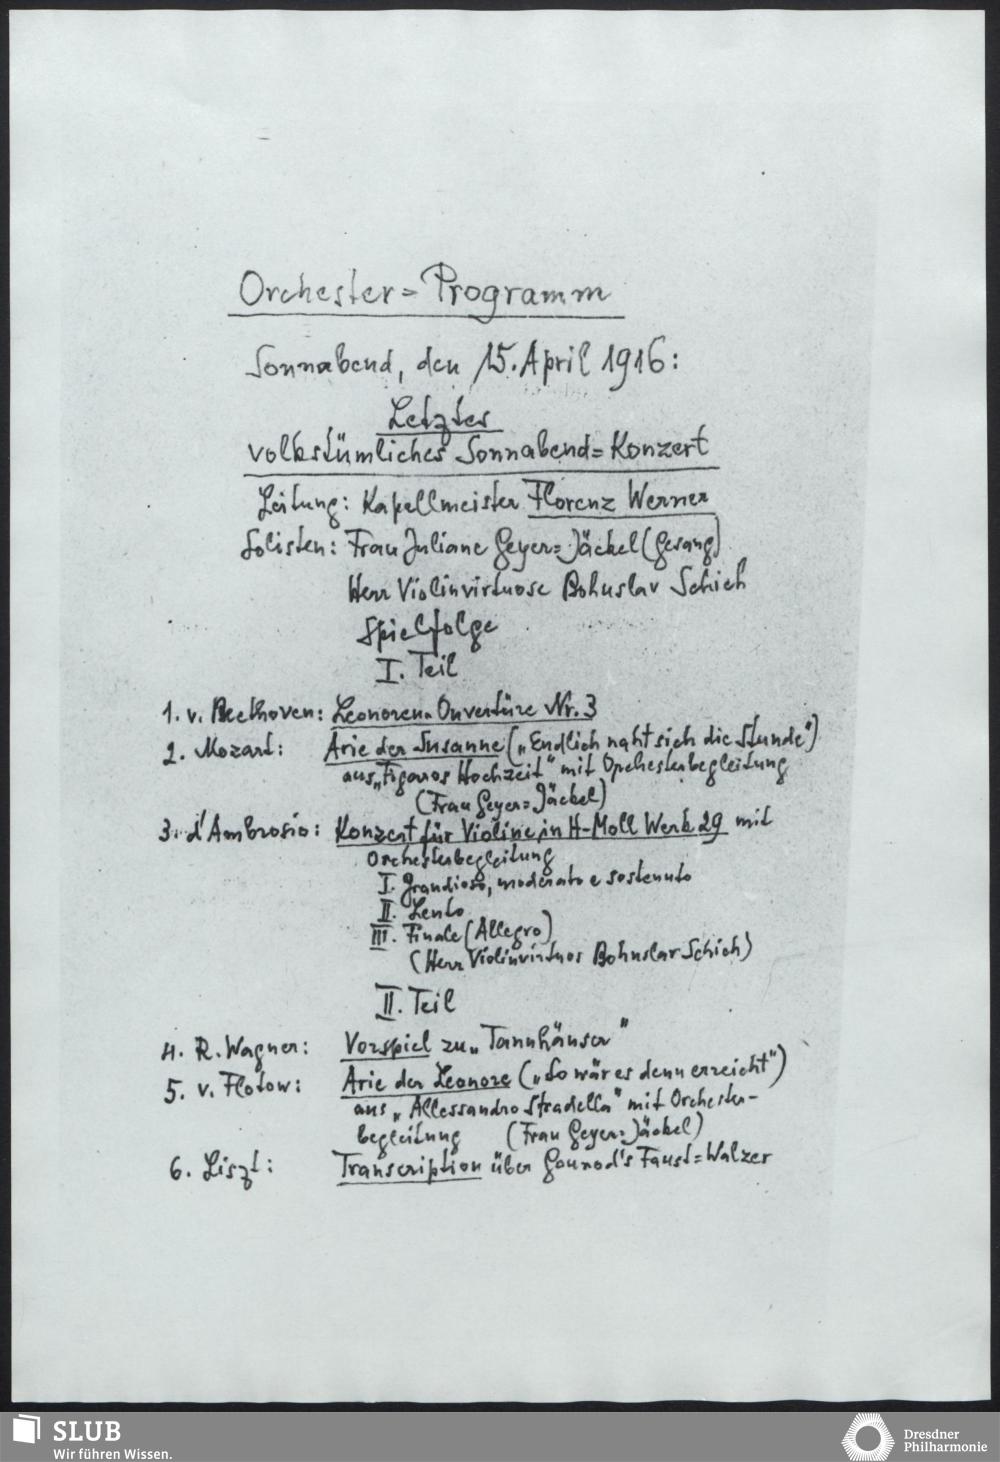 Orchester=Programm
Sonnabend, den 15. April 1916:
Letztes
volkstümliches Sonnabend=Konzert
Leitung: Kapellmeister Florenz Werner
Solisten: Frau Juliane Geyer=Jäckel (Gesang)
Herr Violinvirtuose Bohuslav Schich
Spielfolge
I. Teil
1. v. Beethoven: Leonoren-Ouvertüre Nr. 3
2. Mozart: Arie der Susanne („Endlich naht sich die Stunde")
aus „Figaros Hochzeit" mit Orchesterbegleitung
(Frau Geyer=Jäckel)
3. d'Ambrosio: Konzert für Violine in H-Moll Werk 29 mit
Orchesterbegleitung
I. Grandioso, moderato e sostenuto
II. Lento
III. Finale (Allegro)
(Herr Violinvirtuos Bohuslav Schich)
II. Teil
4. R. Wagner: Vorspiel zu „Tannhäuser"
5. v. Flotow: Arie der Leonore („So wär es denn erreicht")
aus „Allessandro Stradella" mit Orchester-
begleitung (Frau Geyer=Jäckel)
6. Liszt: Transcription über Gounod's Faust=Walzer
SLUB
Wir führen Wissen.
Dresdner
Philharmonie